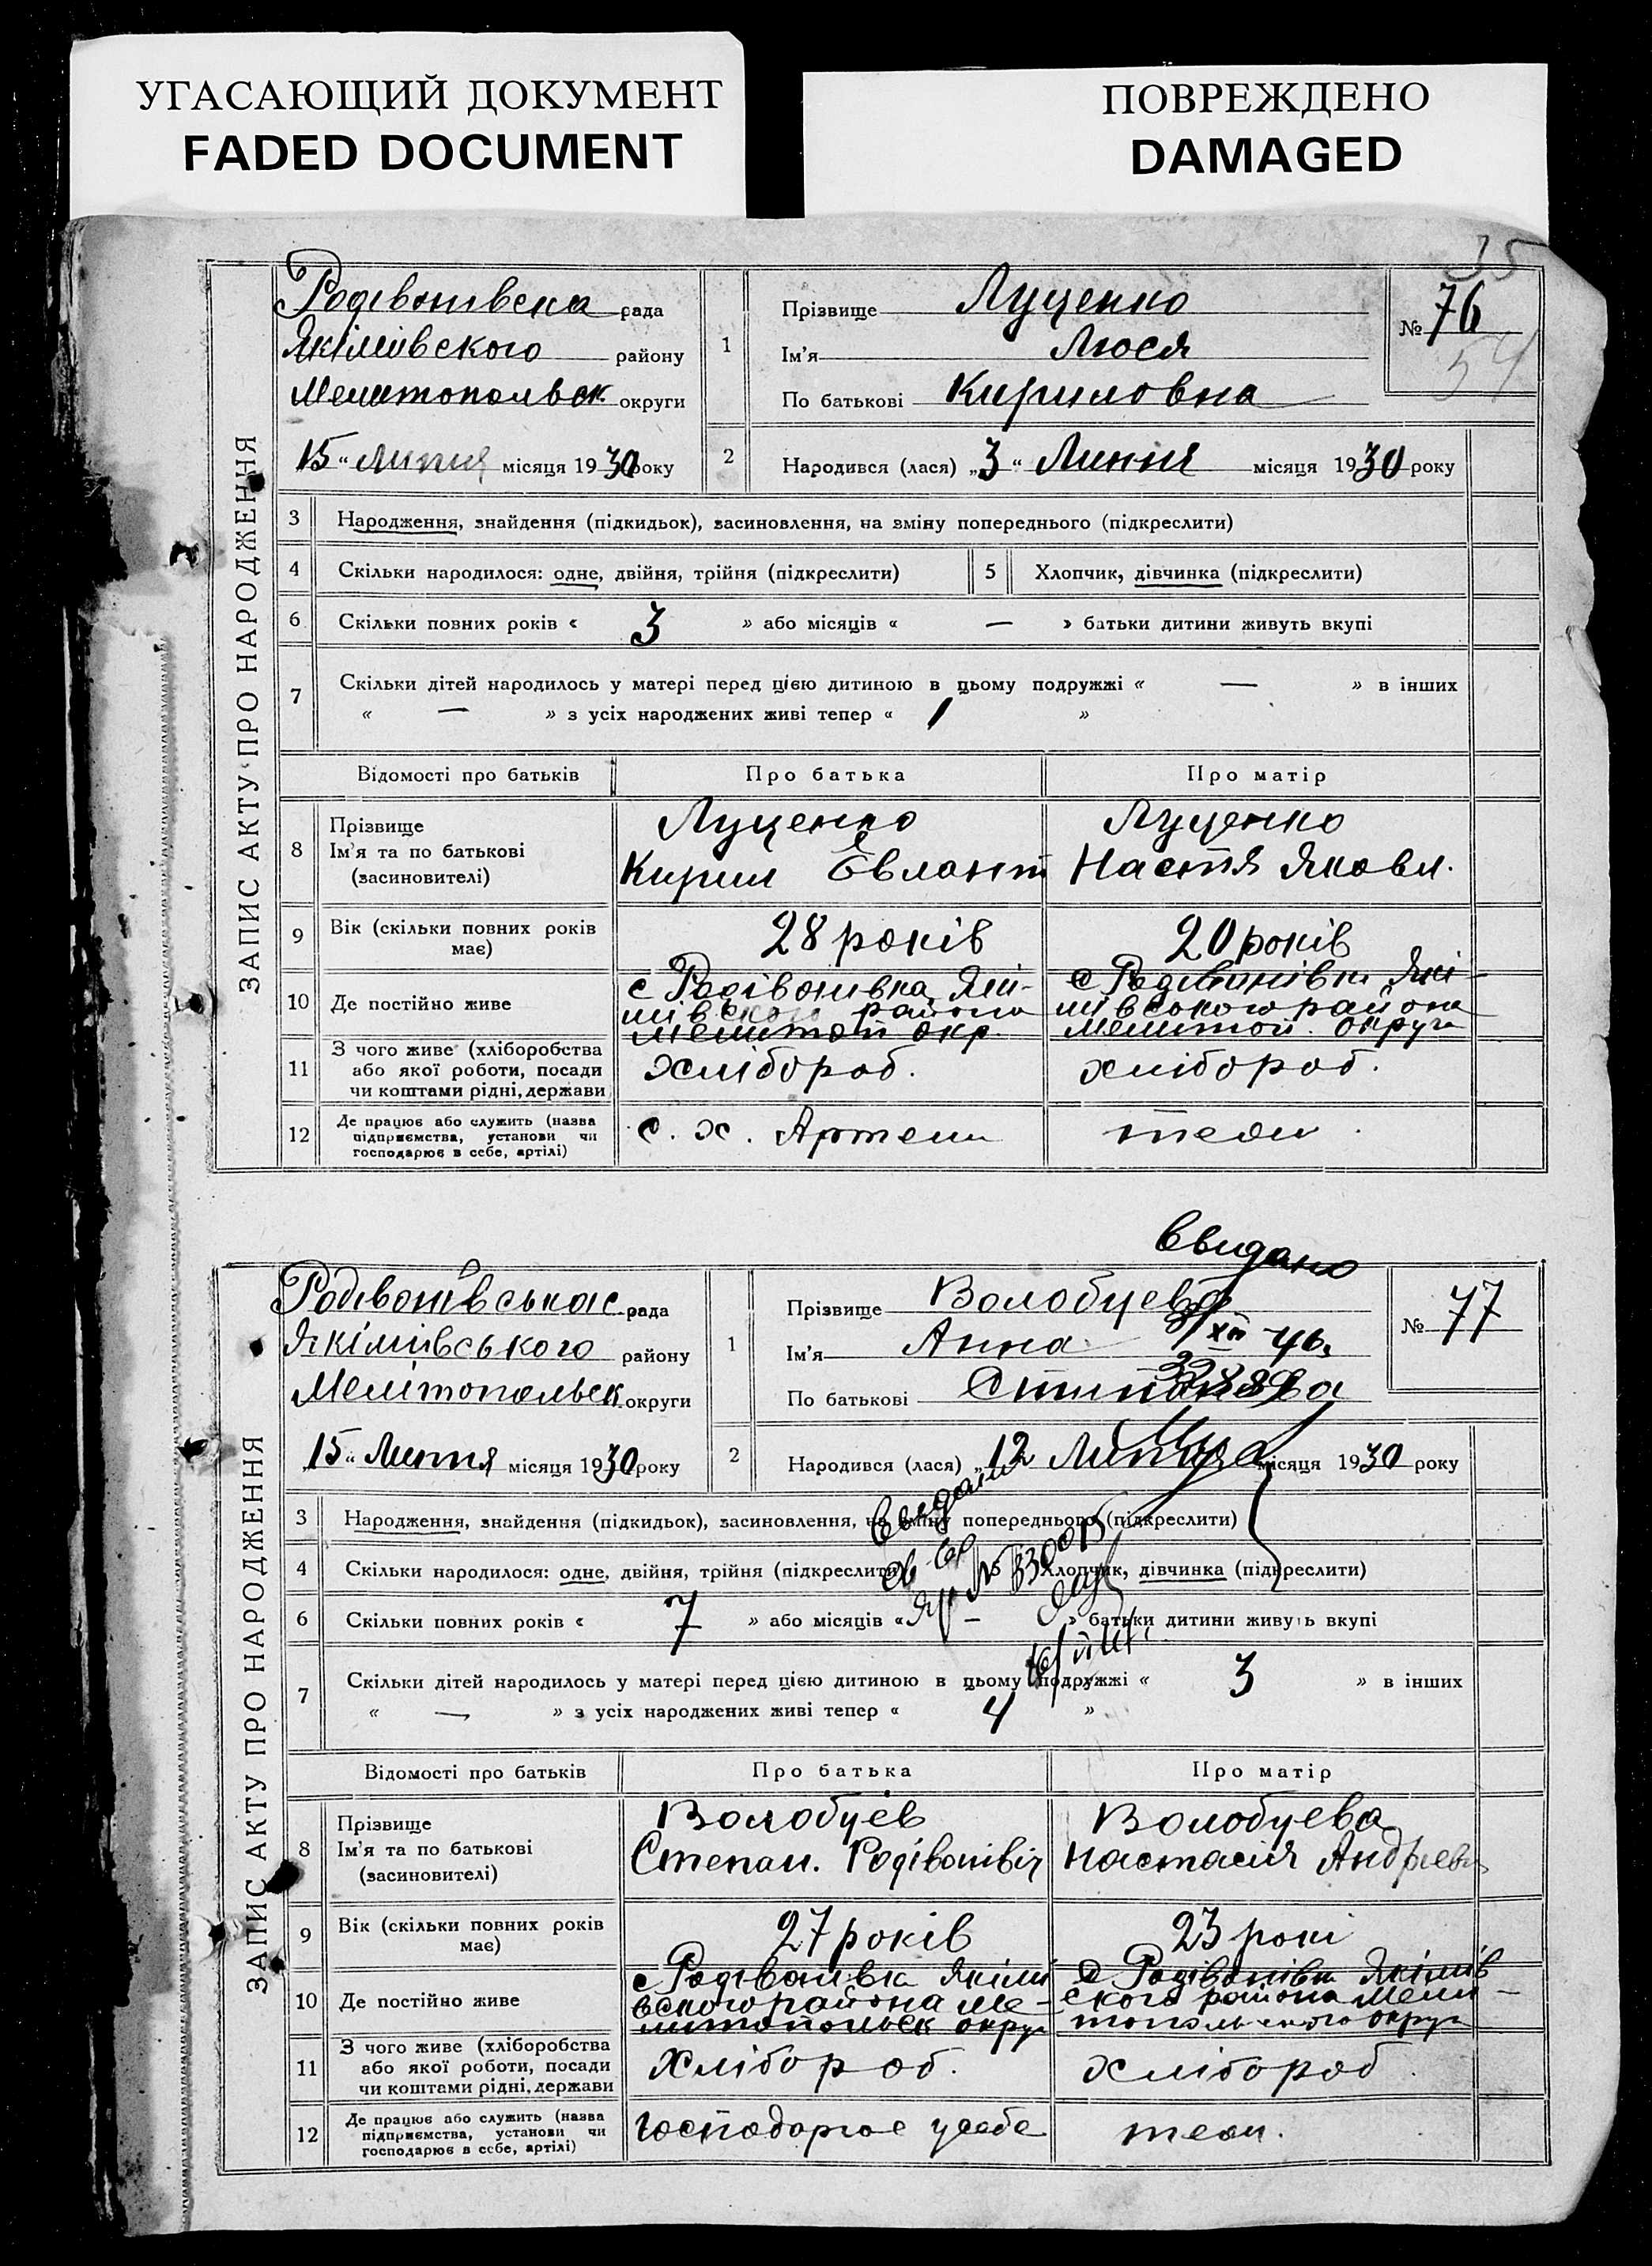 УГАСАЮЩИЙ ДОКУМЕНТ
FADED DOCUMENT
ПОВРЕЖДЕНО
DAMAGED
35
ЗАПИС АКТУ ПРО НАРОДЖЕННЯ
Родівонівска рада
Якімівского району
Мелитопольск округи
15 " Липня місяця 1930 року
1
Прізвище Луценко
Ім'я Люся
По батькові Кириловна
№ 76
54
2
Народився (лася) „3 " Липня місяця 1930 року
3 Народження, знайдення (підкидьок), засиновлення, на зміну попереднього (підкреслити)
4 Скільки народилося: одне, двійня, трійня (підкреслити) 5 Хлопчик, дівчинка (підкреслити)
6 Скільки повних років « 3 » або місяців « — » батьки дитини живуть вкупі
7 Скільки дітей народилось у матері перед цією дитиною в цьому подружжі « — » в інших
« — » з усіх народжених живі тепер « 1 »
Відомості про батьків Про батька Про матір
8 Прізвище
Ім'я та по батькові
(засиновителі)
Луценко
Кирил Євлант
Луценко
Настя Яковл.
9 Вік (скільки повних років має)
28 років
20 років
10 Де постійно живе
с Родівонивка Які-
мівского района
мелитоп окр.
с Родивонівка Які-
мівського района
мелитоп. округи
11 З чого живе (хліборобства
або якої роботи, посади
чи коштами рідні, держави
хлібороб.
хлібороб.
12 Де працює або служить (назва
підприємства, установи чи
господарює в себе, артілі)
с. х. Артели
теж.
ЗАПИС АКТУ ПРО НАРОДЖЕННЯ
Видано
Родівонівська с. рада
Якімівського району
Мелітопольск округи
15 " Липня місяця 1930 року
1
Прізвище Волобуева
Ім'я Анна
XII 40.
По батькові
№ 77
2
Народився (лася) „12 Липня місяця 1930 року
3 Народження, знайдення (підкидьок), засиновлення, на зміну попереднього (підкреслити)
4 Скільки народилося: одне, двійня, трійня (підкреслити) Хлопчик, дівчинка (підкреслити)
6 Скільки повних років « 7 » або місяців « — » батьки дитини живуть вкупі
7 Скільки дітей народилось у матері перед цією дитиною в цьому подружжі « 3 » в інших
« — » з усіх народжених живі тепер « 4 »
Відомості про батьків Про батька Про матір
8 Прізвище
Ім'я та по батькові
(засиновителі)
Волобуєв
Степан. Родівонівіч
Волобуева
Настасия Андреевн
9 Вік (скільки повних років має)
27 років
23 рокі
10 Де постійно живе
с Родівонівка Якімі
вского района Ме-
литопольск округ
с Родівонівка Якімів
ского района Мели-
топольского округи
11 З чого живе (хліборобства
або якої роботи, посади
чи коштами рідні, держави
Хлібороб.
хлібороб
12 Де працює або служить (назва
підприємства, установи чи
господарює в себе, артілі)
Господарює усебе
теж.